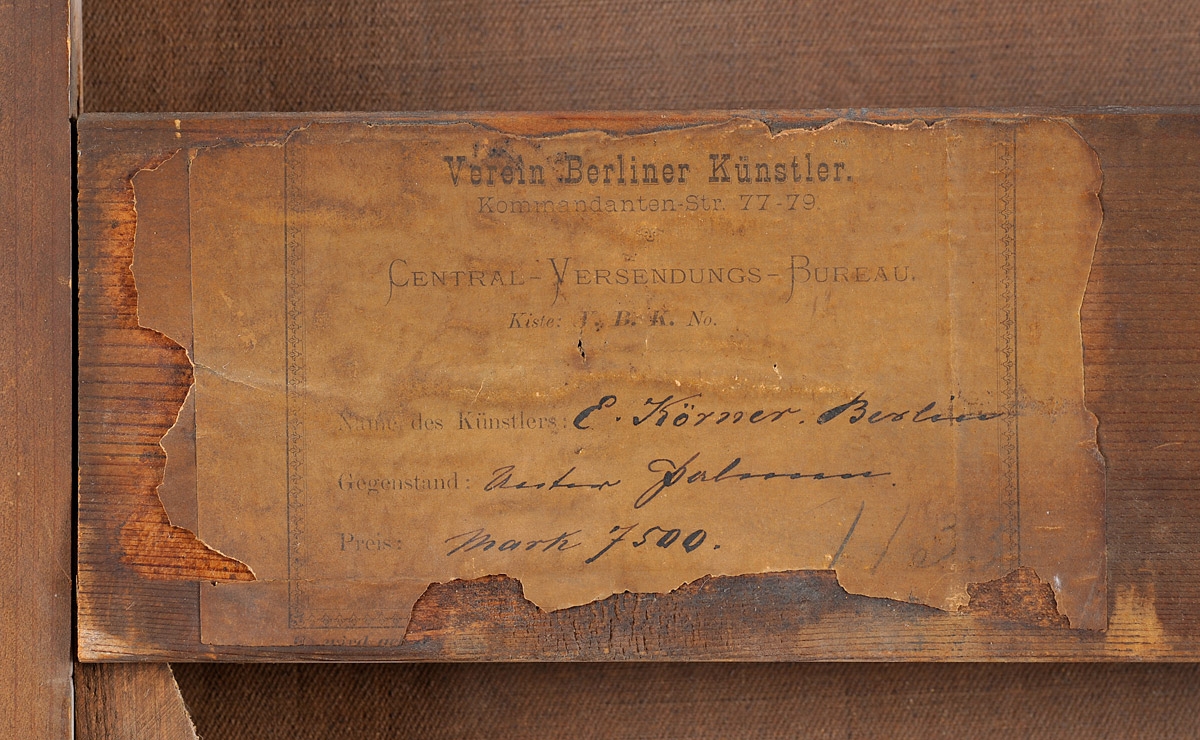 Verein Berliner Künstler.
Kommandanten-Str. 77-79.
CENTRAL-VERSENDUNGS-BUREAU.
Kiste: V. B. K. No.
Name des Künstlers: E. Körner. Berlin
Gegenstand: Unter Palmen.
Preis: Mark 7500.
wird